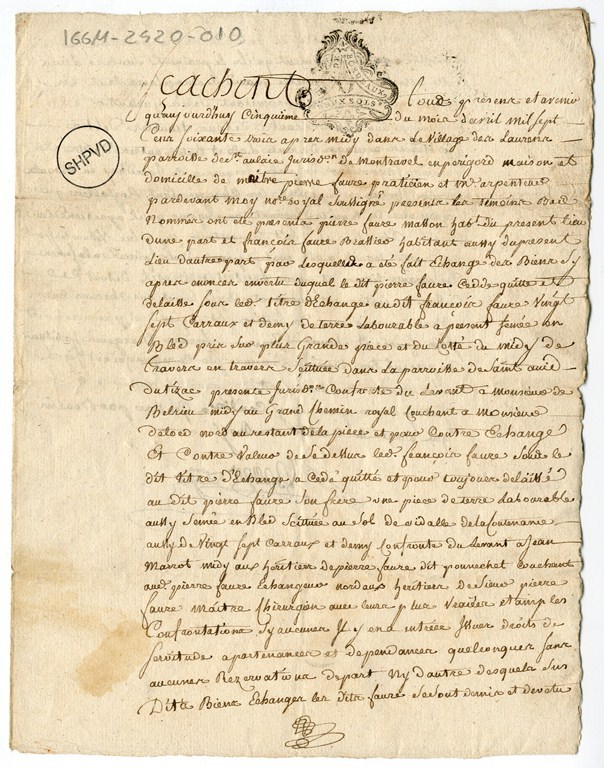 166M-2920-010
SHPVD
DEUX SOLS
Scachent Tous presens et avenir
quaujourdhuy Cinquieme du mois davril mil sept
Cens soixante trois apres midy dans Le Village des Laurens
parroisse de St. aulaie Jurison. de montravel en perigord maison et
domicille de maître pierre faure praticien et arpenteur
pardevant moy nore. Royal soussigné presents les Temoins Bas
Nommés ont eté presents pierre faure masson habt. du present lieu
dune part et françois faure Brassier habitant aussy du present
Lieu dautre part par Lesquelles a eté fait Echange des Biens sy
apres enoncés en vertu duquel le dit pierre faure Cedde quitte et
delaisse sous led. titre dEchange audit françois faure Vingt
sept Carraux et demy de terre Labourable a present semée en
Bled pris sur plus Grande piece et du Cotté du midy de
travers en travers scittuée dans La parroisse de Saint avid
du tizac presente Jurison. Confronte du Levant a monsieur de
Belrieu midy au Grand Chemin royal Couchant a monsieur
nord au restant de la piece et pour Contre Echange
Et Contre Valeur de led. françois faure sous le
dit titre d'Echange a Cedé quitté et pour toujours delaissé
au dit pierre faure son frere une piece de terre Labourable
aussy semée en Bled scittuée au sol de vidalle de la Contenance
aussy de Vingt sept Carraux et demy Confronte du Levant a Jean
Marrot midy aux heritiers de pierre faure dit pounechet Couchant
aud. pierre faure Echangeur nord aux heritiers de sieur pierre
faure maitre Chirurgien avec leurs plus et amples
Confrontations sy aucunes Il y en a entrées Issues droits de
servitude apartenances et dependances quelconques sans
aucunes Rezervations depart ny dautre desquels sus
Dits Biens Echangés les dits faure se sont demis et devetu